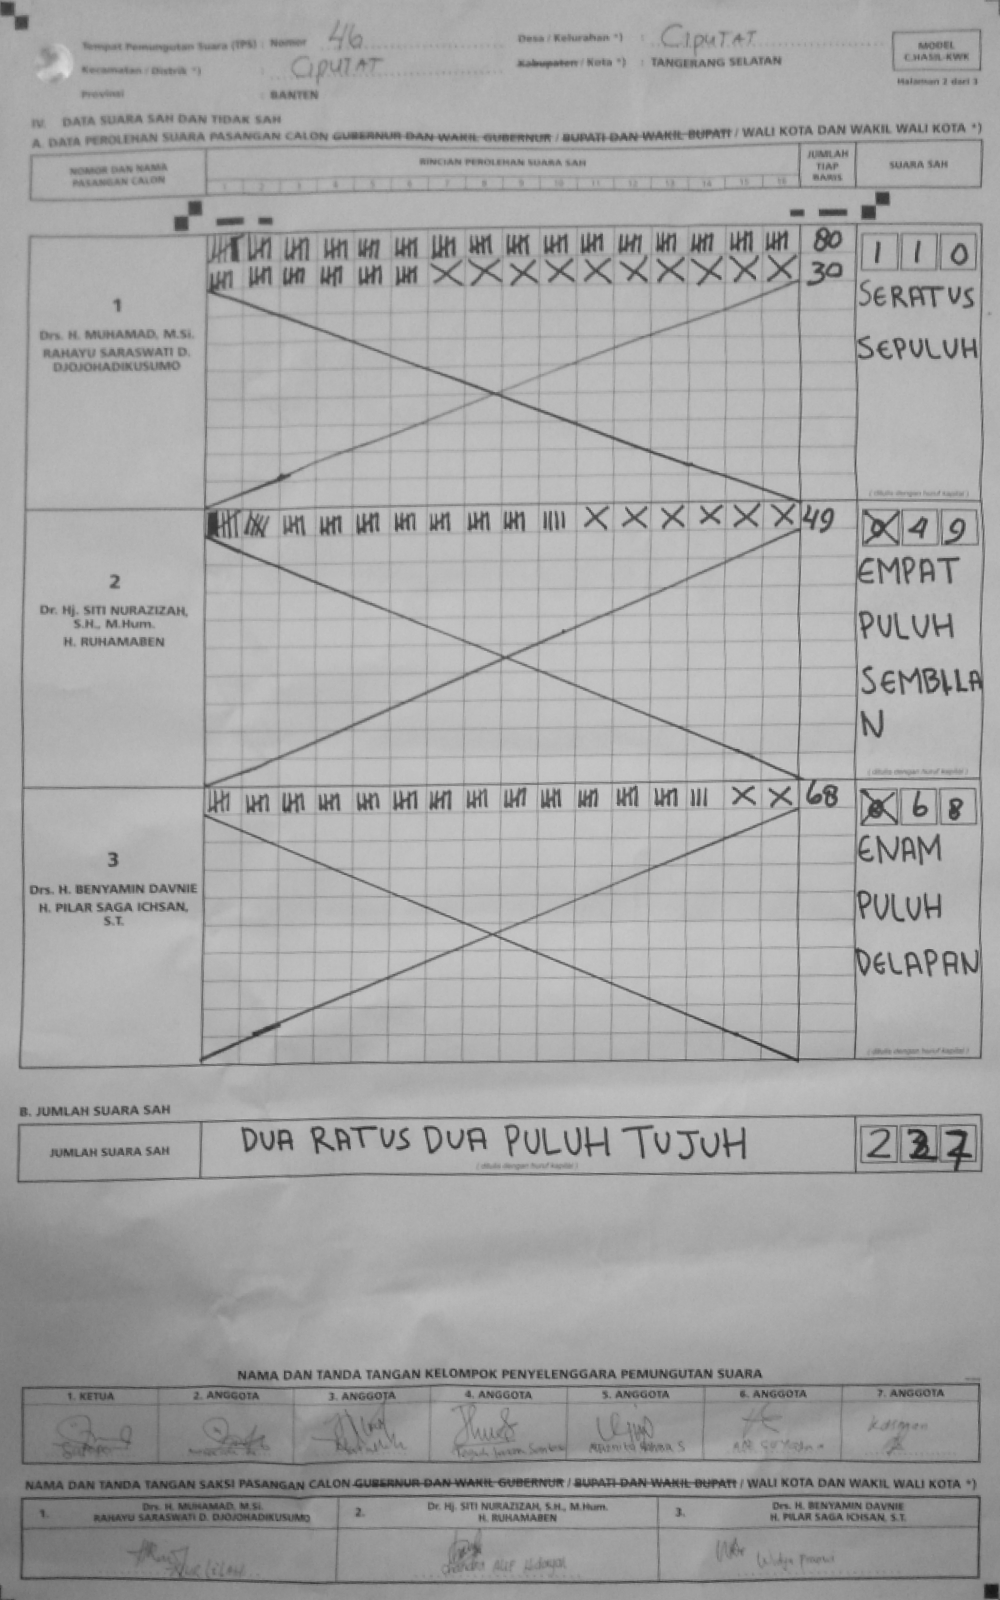 Tempat Pemungutan Suara (TPS) : Nomor 46 Desa / Kelurahan *) : CIPUTAT
Kecamatan / Distrik *) : CIPUTAT Kabupaten / Kota *) : TANGERANG SELATAN
Provinsi : BANTEN
MODEL
C.HASIL-KWK
Halaman 2 dari 3
IV. DATA SUARA SAH DAN TIDAK SAH
A. DATA PEROLEHAN SUARA PASANGAN CALON GUBERNUR DAN WAKIL GUBERNUR / BUPATI DAN WAKIL BUPATI / WALI KOTA DAN WAKIL WALI KOTA *)
NOMOR DAN NAMA
PASANGAN CALON
RINCIAN PEROLEHAN SUARA SAH
1 2 3 4 5 6 7 8 9 10 11 12 13 14 15 16
JUMLAH
TIAP
BARIS
SUARA SAH
1
Drs. H. MUHAMAD, M.Si.
RAHAYU SARASWATI D.
DJOJOHADIKUSUMO
80
30
1 1 0
SERATUS
SEPULUH
( ditulis dengan huruf kapital )
2
Dr. Hj. SITI NURAZIZAH,
S.H., M.Hum.
H. RUHAMABEN
49
X 4 9
EMPAT
PULUH
SEMBILLA
N
( ditulis dengan huruf kapital )
3
Drs. H. BENYAMIN DAVNIE
H. PILAR SAGA ICHSAN,
S.T.
68
X 6 8
ENAM
PULUH
DELAPAN
( ditulis dengan huruf kapital )
B. JUMLAH SUARA SAH
JUMLAH SUARA SAH
DUA RATUS DUA PULUH TUJUH
( ditulis dengan huruf kapital )
2 2 7
NAMA DAN TANDA TANGAN KELOMPOK PENYELENGGARA PEMUNGUTAN SUARA
1. KETUA 2. ANGGOTA 3. ANGGOTA 4. ANGGOTA 5. ANGGOTA 6. ANGGOTA 7. ANGGOTA
NAMA DAN TANDA TANGAN SAKSI PASANGAN CALON GUBERNUR DAN WAKIL GUBERNUR / BUPATI DAN WAKIL BUPATI / WALI KOTA DAN WAKIL WALI KOTA *)
1. Drs. H. MUHAMAD, M.Si.
RAHAYU SARASWATI D. DJOJOHADIKUSUMO
2. Dr. Hj. SITI NURAZIZAH, S.H., M.Hum.
H. RUHAMABEN
3. Drs. H. BENYAMIN DAVNIE
H. PILAR SAGA ICHSAN, S.T.